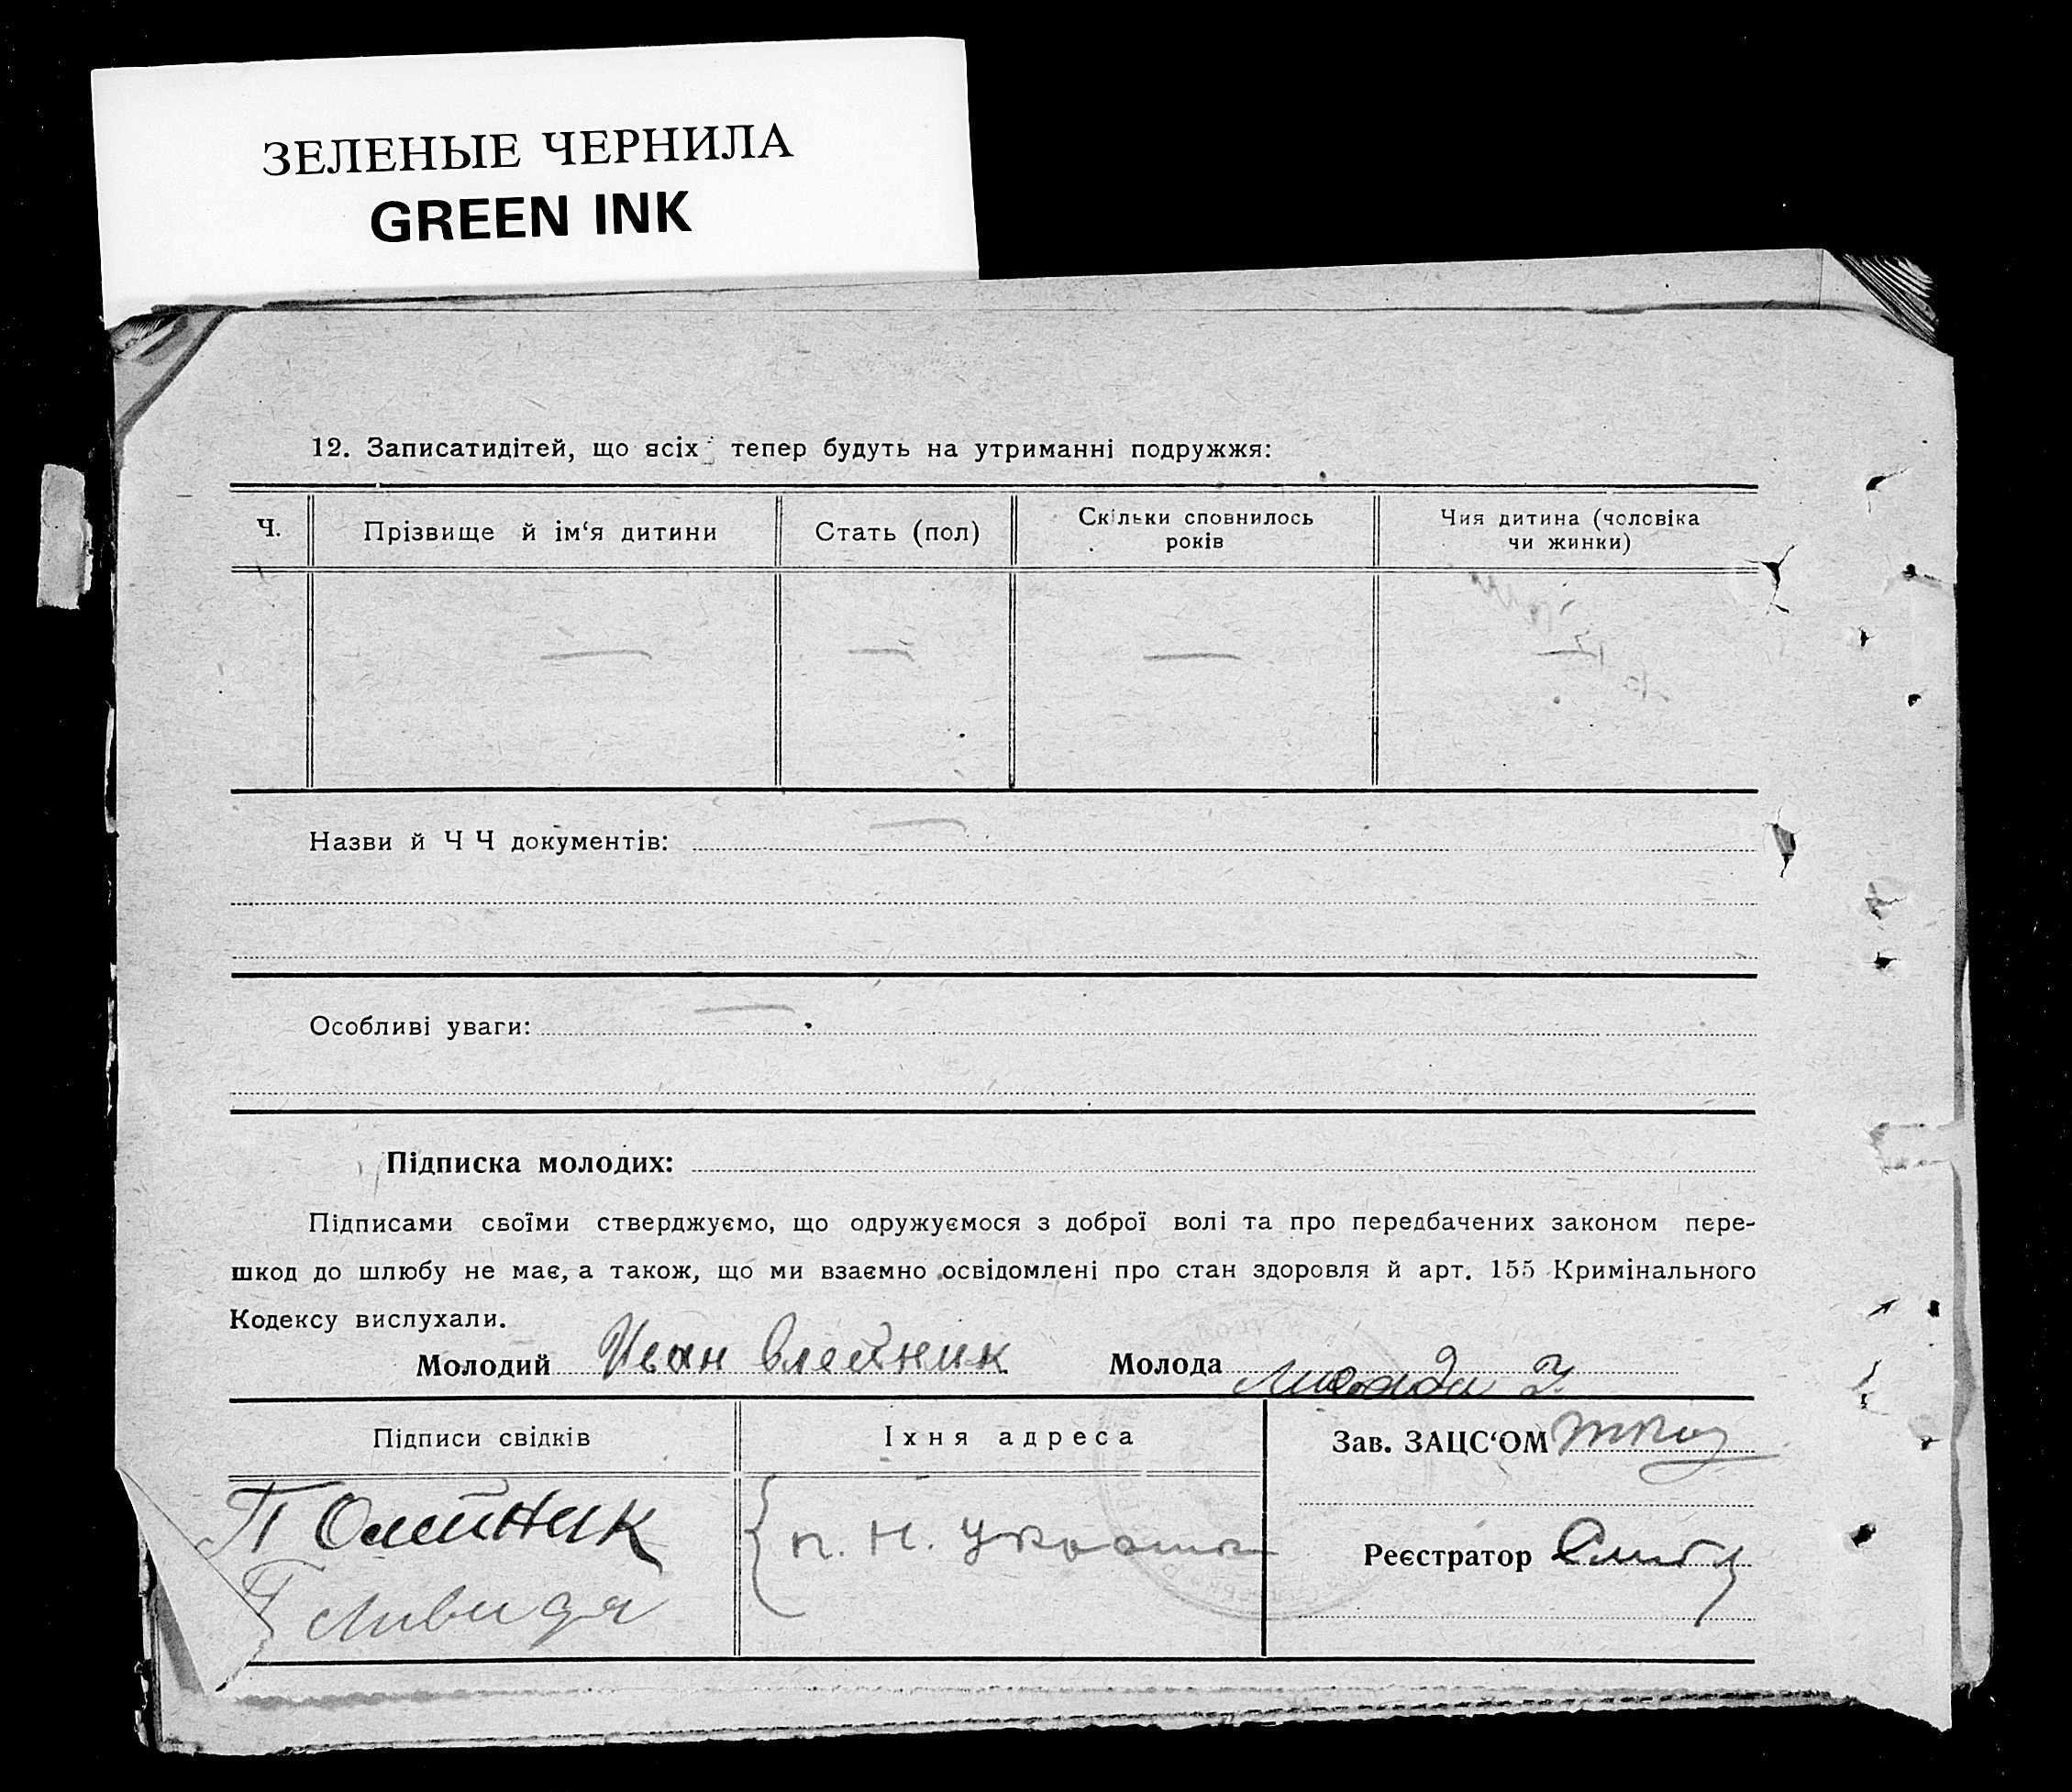 ЗЕЛЕНЫЕ ЧЕРНИЛА
GREEN INK
12. Записатидітей, що всіх тепер будуть на утриманні подружжя:
Ч.
Прізвище й ім‘я дитини
Стать (пол)
Скільки сповнилось
років
Чия дитина (чоловіка
чи жинки)
Назви й Ч Ч документів:
Особливі уваги:
Підписка молодих:
Підписами своїми стверджуємо, що одружуємося з доброї волі та про передбачених законом пере-
шкод до шлюбу не має, а також, що ми взаємно освідомлені про стан здоровля й арт. 155 Кримінального
Кодексу вислухали.
Молодий Иван Олейник Молода
Підписи свідків
Їхня адреса
Зав. ЗАЦС‘ОМ
П Олейник
п. Н.
Реєстратор